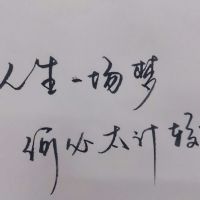 人生一场梦
何必太计较